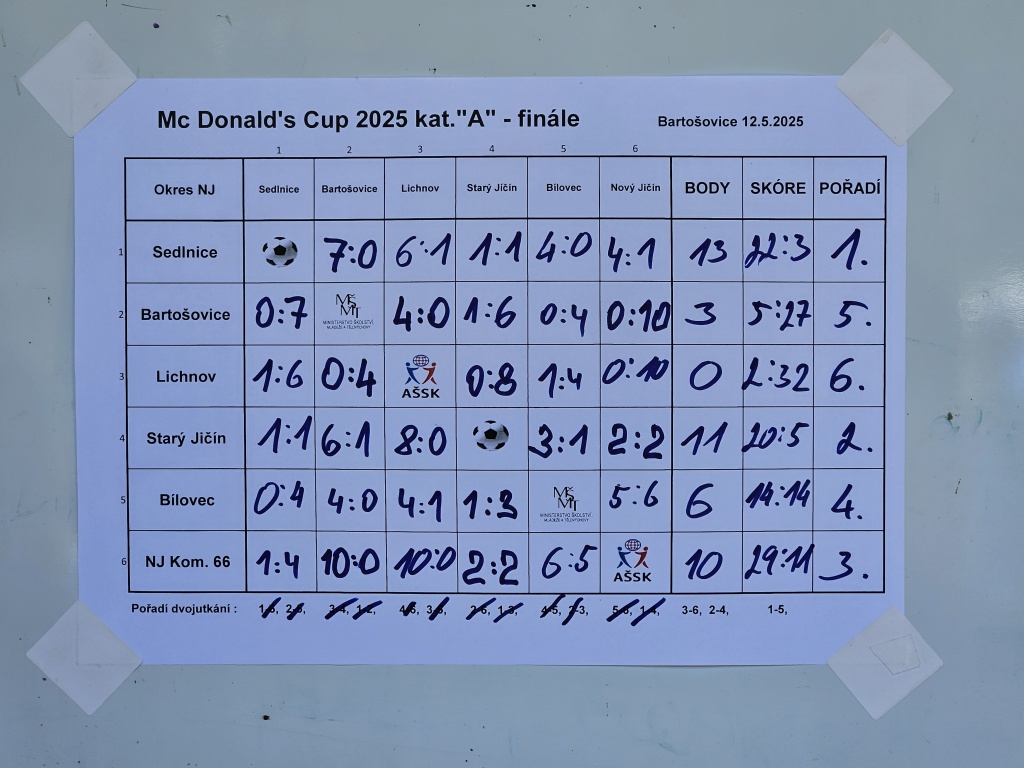 Mc Donald's Cup 2025 kat."A" - finále Bartošovice 12.5.2025
1 2 3 4 5 6
Okres NJ Sedlnice Bartošovice Lichnov Starý Jičín Bílovec Nový Jičín BODY SKÓRE POŘADÍ
1 Sedlnice 7:0 6:1 1:1 4:0 4:1 13 22:3 1.
2 Bartošovice 0:7 MŠMT MINISTERSTVO ŠKOLSTVÍ, MLÁDEŽE A TĚLOVÝCHOVY 4:0 1:6 0:4 0:10 3 5:27 5.
3 Lichnov 1:6 0:4 AŠSK 0:8 1:4 0:10 0 2:32 6.
4 Starý Jičín 1:1 6:1 8:0 3:1 2:2 11 20:5 2.
5 Bílovec 0:4 4:0 4:1 1:3 MŠMT MINISTERSTVO ŠKOLSTVÍ, MLÁDEŽE A TĚLOVÝCHOVY 5:6 6 14:14 4.
6 NJ Kom. 66 1:4 10:0 10:0 2:2 6:5 AŠSK 10 29:11 3.
Pořadí dvojutkání : 3-6, 2-4, 1-5,